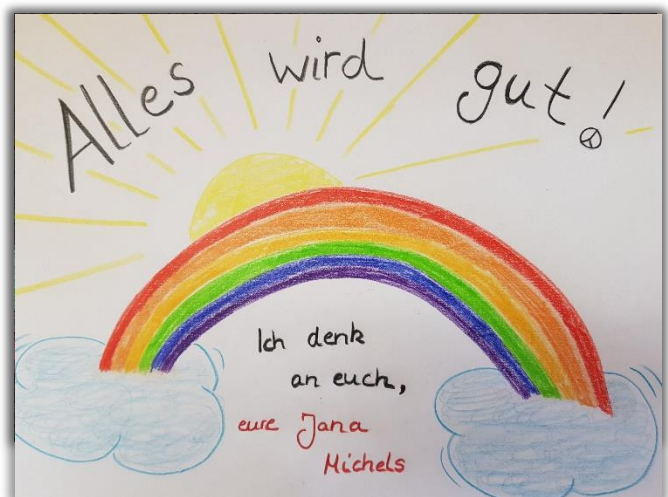 Alles wird gut!
Ich denk
an euch,
eure Jana
Michels